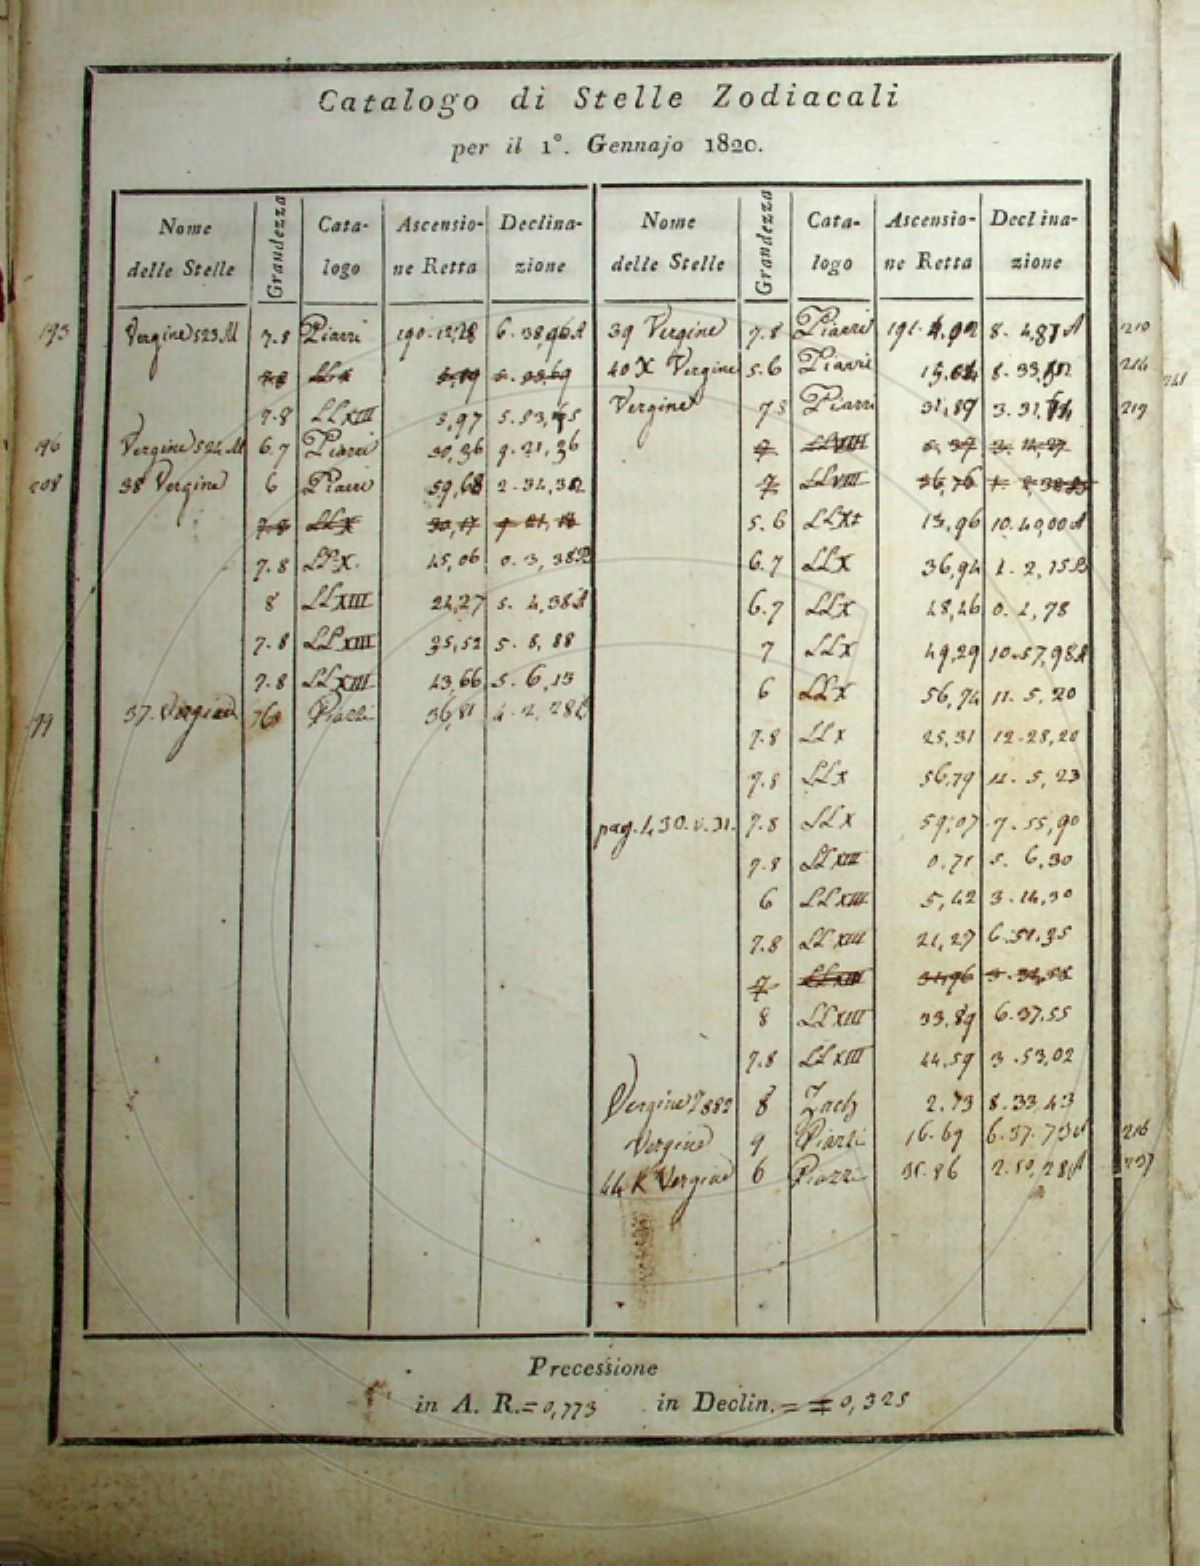 Catalogo di Stelle Zodiacali
per il 1°. Gennajo 1820.
Nome delle Stelle Grandezza Cata-logo Ascensio-ne Retta Declina-zione
193 Vergine 523 M 7.8 Piazzi 190.12,28 6.38,96 A
7.8 LLXIII 5,97 5.53,
196 Vergine 524 M 6.7 Piazzi 30,36 9.21,36
208 38 Vergine 6 Piazzi 59,68 2.34,32
7.8 LLX. 45,06 0.3,38 B
8 LLXIII 24,27 5.4,38 A
7.8 LLXIII 35,52 5.8,88
7.8 LLXIII 43,66 5.6,13
199 37. Vergine 76 Piazzi 36,81 4.2,28 B
Nome delle Stelle Grandezza Cata-logo Ascensio-ne Retta Declina-zione
39 Vergine 7.8 Piazzi 191.4,92 8.4,87 A 210
40 X Vergine 5.6 Piazzi 8.33, 214
Vergine 7.8 Piazzi 31,87 3.31, 219
5.6 LLX 13,96 10.40,00 A
6.7 LLX 36,94 1.2,15 B
6.7 LLX 48,46 0.1,78
7 LLX 49,29 10.57,98 A
6 LLX 56,74 11.5,20
7.8 LLX 25,31 12.28,20
7.8 LLX 56,79 11.5,23
pag. 430. v. 31. 7.8 LLX 59,07 7.55,90
7.8 LLXIII 0,71 5.6,30
6 LLXIII 5,42 3.14,30
7.8 LLXIII 21,27 6.51,35
8 LLXIII 33,89 6.37,55
7.8 LLXIII 44,59 3.53,02
Vergine 882 8 Zach 2,73 8.33,43
Vergine 9 Piazzi 16.69 6.37.73 216
44 K Vergine 6 Piazzi 35.86 2.50,28 A
Precessione
in A. R. = 0,773 in Declin. = ∓ 0,325